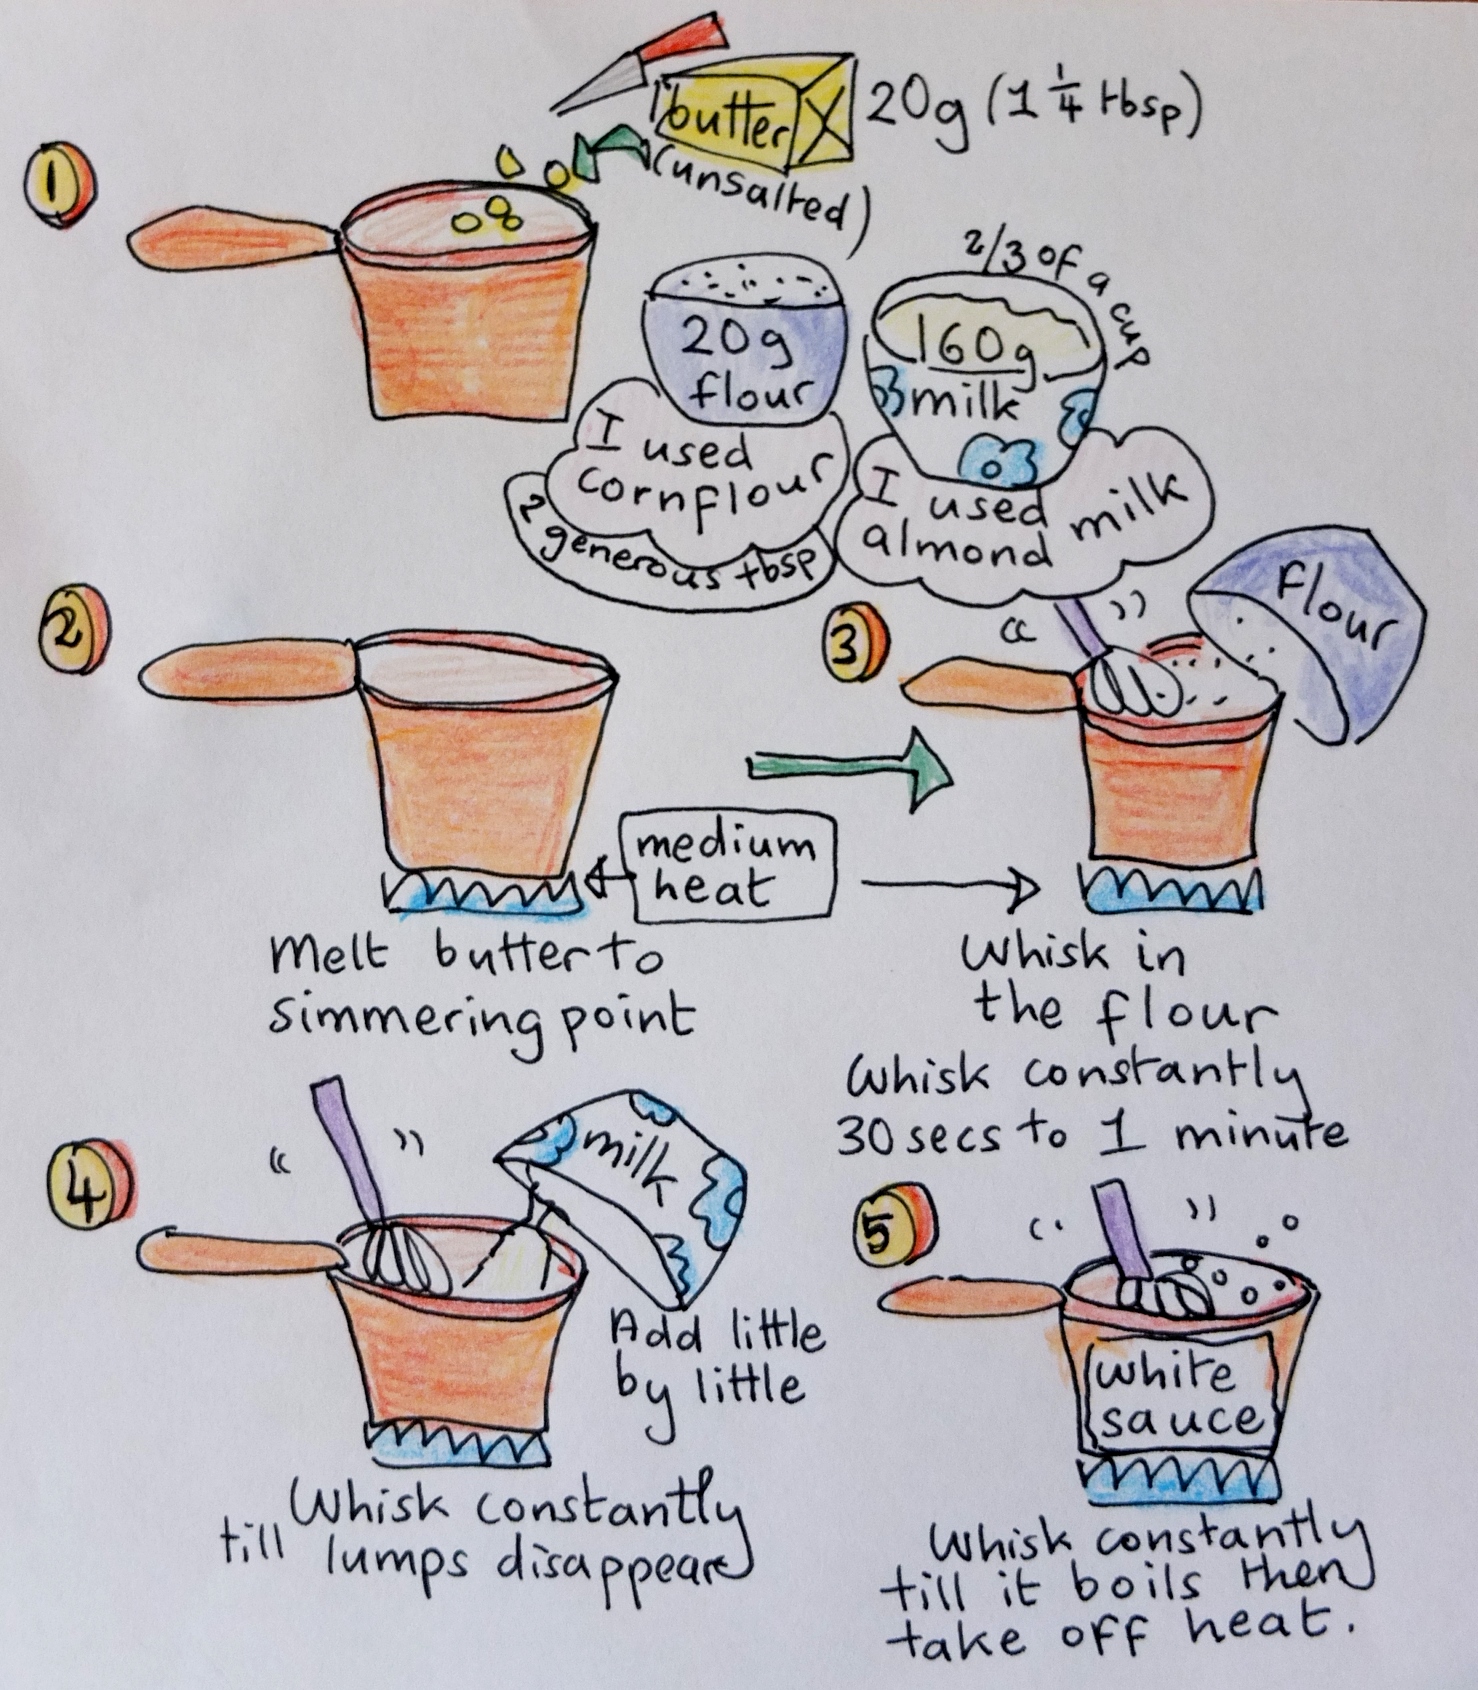 1
butter
20g (1 1/4 tbsp)
(unsalted)
20g
flour
I used
cornflour
2 generous tbsp
2/3 of a cup
160g
milk
I used
almond milk
2
medium
heat
Melt butter to
simmering point
3
flour
Whisk in
the flour
Whisk constantly
30 secs to 1 minute
4
milk
Add little
by little
Whisk constantly
till lumps disappear
5
white
sauce
Whisk constantly
till it boils then
take off heat.